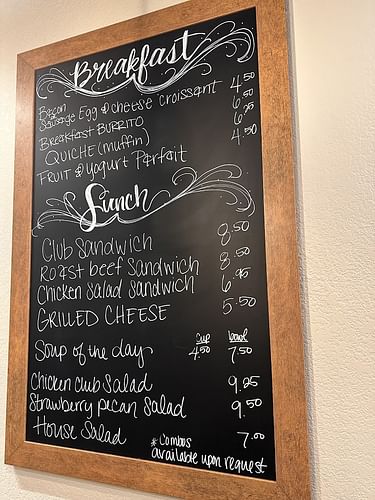 Breakfast
Bacon
Sausage Egg & cheese croissant 4.50
Breakfast BURRITO 6.50
QUICHE (muffin) 6.25
FRUIT & yogurt Parfait 4.50
Lunch
Club Sandwich 8.50
ROAST beef SANDWICH 8.50
Chicken Salad Sandwich 6.95
GRILLED CHEESE 5.50
Cup bowl
Soup of the day 4.50 7.50
Chicken Club Salad 9.25
Strawberry pecan Salad 9.50
House Salad 7.00
* Combos
available upon request